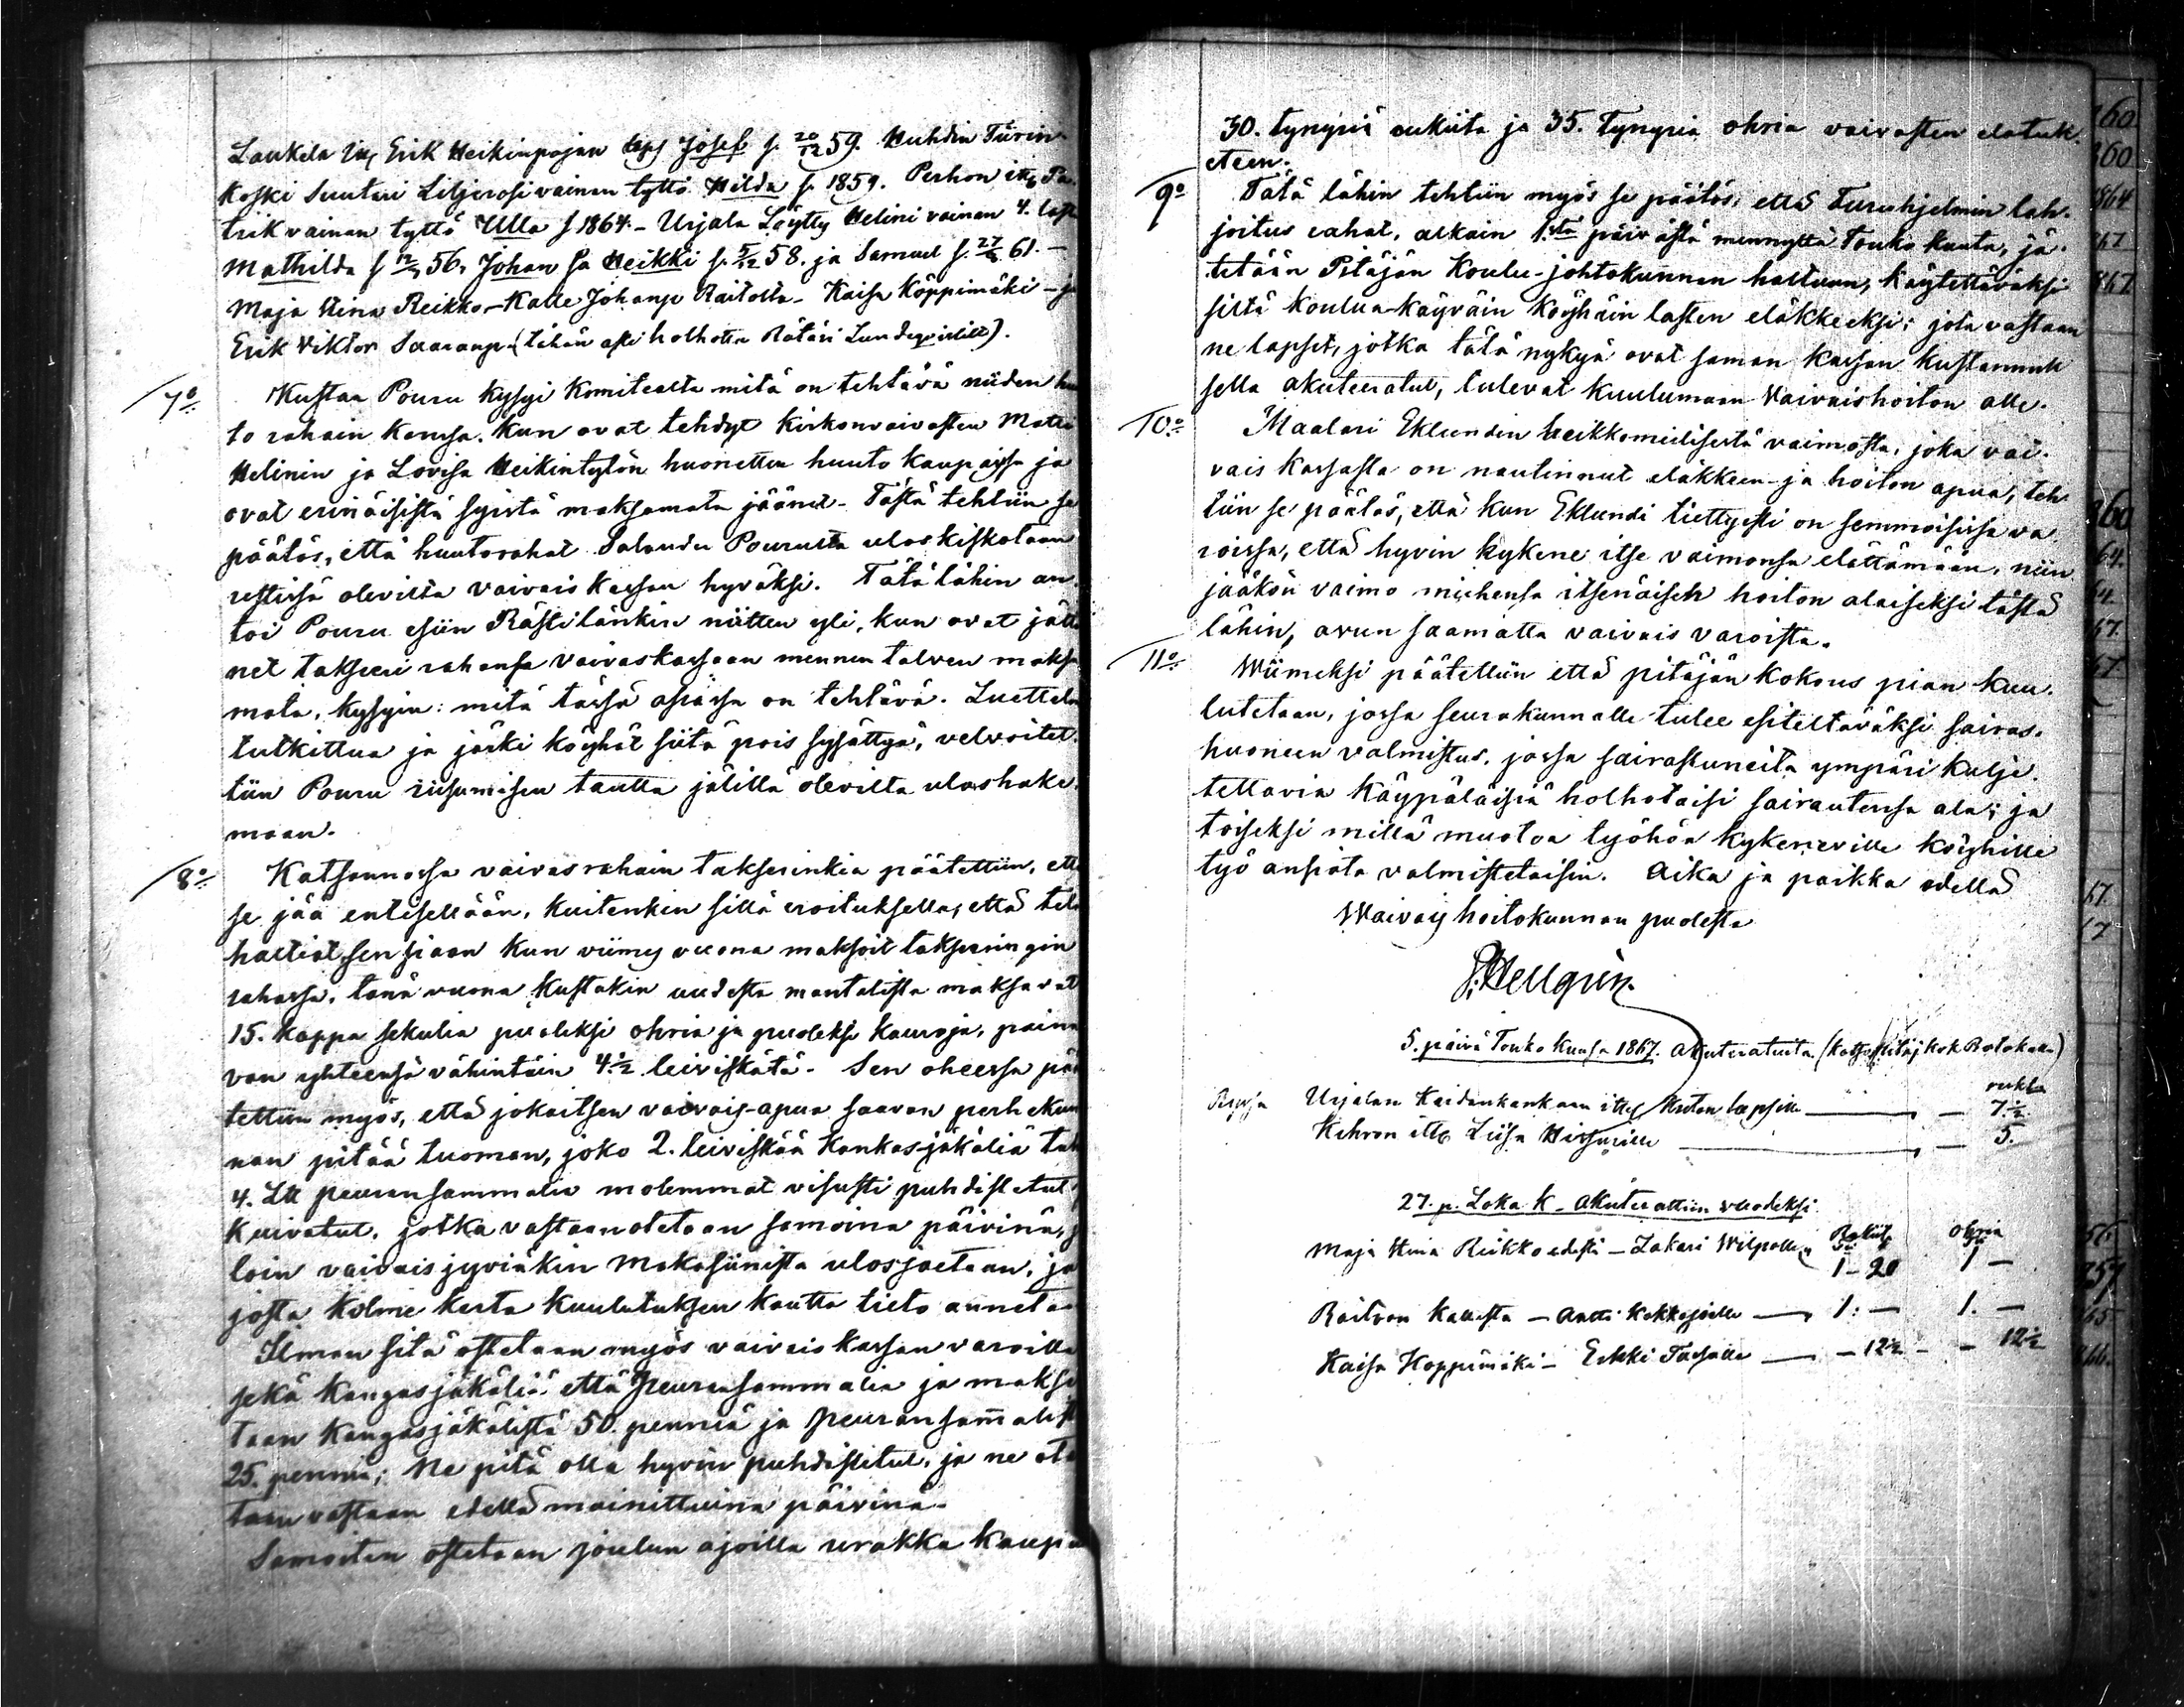 Laukela Erik Heikinpojan laps Josef f. 20/12 59. Huhdin Türin-
koski Suutari Liljerosi vainan tyttö Hilda f. 1859. Perhon Pa-
trik vainan tyttö Ulla f 1864. - Urjala Löytty Helini vainan 4. last
Mathilda f 12/ 56, Johan ja Heikki f. 5/12 58. ja Samuel f. 27/ 61. -
Maja Stina Reikko - Kalle Johanp Raitolta - Kaisa Köppimäki - ja
Erik Viktor Saaranp. (tähän asti holhottu Rätäri Lundqvistilla).
7o Kustaa Pouru kysyi Komitealta mitä on tehtävä niiden huu
to rahain kanssa. Kun ovat tehdyt kirkonvaivasten Matti
Helinin ja Lovisa Heikintytön huonetten huuto kaupassa ja
ovat erinäisistä syistä maksamata jäänet - Tästä tehtiin se
päätös, että huutorahat Salandu Pourulta uloskiskotaan
restissä olevilta vaivais kassan hyväksi. Tätä lähin an-
toi Pouru esiin Rästilänkin niitten yli, kun ovat jättä
net takseeri rahansa vaivaskassaan mennen talven maksa
mata, kysyin: mitä tässä asiassa on tehtävä. Luettelo
tutkittua ja jäski köyhät siitä pois sysättyä, velvoitet-
tiin Pouru riisumisen tautta jälillä olevilta uloshake-
maan.
8o Katsannossa vaivasrahain takserinkia päätettiin, että
se jää entisellään, kuitenkin sillä eroituksella, että talo
haltiat, sen siaan kun viimes vuona maksoit takseeringin
rahassa, tänä vuona kustakin uudesta mantalista maksavat
15. kappa sekulia puoleksi ohria ja puoleksi kauroja, paina
van yhteensä vähintäin 4 1/2 leiviskätä - Sen oheessa pää
tettiin myös, että jokaitsen vaivais-apua saavan perhekun
nan pitää tuoman, joko 2. leiviskää kankas-jäkäliä tah
4. Lb peuransammalia molemmat visusti puhdistetut
kuivatut, jotka vastaanotetaan samoina päivinä, j
loin vaivaisjyviäkin Makasiinista ulosjaetaan, ja
josta kolme kerta kuulutuksen kautta tieto annetaa
Ilman sitä ostetaan myös vaivais kassan varoilla
sekä kangasjäkäliä että peuransammalia ja makse
taan kangasjäkälistä 50. penniä ja peuransam̄alist
25. penniä; Ne pitä olla hyvin puhdistetut, ja ne ote
taan vastaan edellä mainittuina päivinä -
Samoiten ostetaan joulun ajoilla urakka kaupa
30. tynyriä rukiita ja 35. Tynyria ohria vaivasten elatuk-
steen.
9o Tätä lähin tehtiin myös se päätös, että Furuhjelmin lah-
joitus rahat, alkain 1.stä päivästä mennyttä Touko kuuta, jä-
tetään Pitäjän Koulu-johtokunnan haltuun, käytettäväksi
siitä koulua-käyväin köyhäin lasten eläkkeeksi; jota vastaan
ne lapset, jotka tätä nykyä ovat saman kassan kustannuk
sella akuteeratut, tulevat kuulumaan Vaivaishoiton alle.
10o Maalari Eklundin heikkomielisestä vaimosta, joka vai-
vais kassasta on nautinnut eläkkeen- ja hoiton apua, teh-
tiin se päätös, että kun Eklundi tiettysti on semmoisissa va
roissa, että hyvin kykene itse vaimonsa elättämään, niin
jääköön vaimo miehensä itsenäiseh hoiton alaiseksi tästä
lähin, avun saamatta vaivais varoista.
11o Wiimeksi päätettiin että pitäjän kokous pian kuu-
lutetaan, jossa seurakunnalle tulee esiteltäväksi sairas-
huoneen valmistus, jossa sairastuneita ympäri kulje-
tettavia käypäläisiä holhotaisi sairautensa ala; ja
toiseksi millä muotoa työhön kykeneville köyhille
työ ansiota valmistetaisiin. Aika ja paikka edellä
Waivais hoitokunnan puolesta
Hellgrén.
5. päivä Touko kuusa 1867. akuteratuita (katso Pitäj kok Rotokolla)
rukta
Urjalan Kaidankankaan lapsille — 7 1/2
Kehron Liisa — 5.
27. p. Loka k. akuterattiin vuodeksi
Rukiit Ohria
Maja Stina Reikko edesti - Zakari Wilpolle 1 - 20 1 -
Raitoon Kallesta - Antti Kokkojoelle — 1. — 1. —
Kaisa Köppimäki - Erkki — - 12 1/2 - 12 1/2